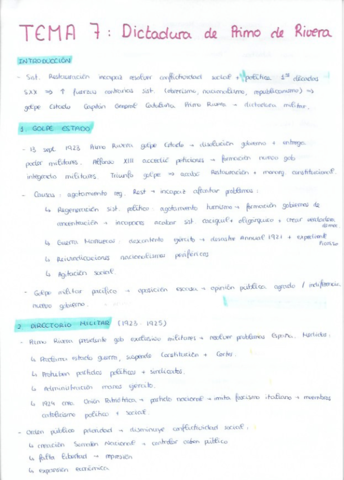 TEMA 7: Dictadura de Primo de Rivera
INTRODUCCIÓN
- Sist. Restauración incapaz resolver conflictividad social + política 1ªs décadas
SXX → ↑ fuerzas contrarias sist. (obrerismo, nacionalismo, republicanismo) →
golpe Estado Capitán General Cataluña Primo Rivera → dictadura militar.
1 GOLPE ESTADO
- 13 sept 1923 Primo Rivera golpe Estado → disolución gobierno + entrega
poder militares. Alfonso XIII accedió peticiones → formación nuevo gob
integrado militares. Triunfo golpe → acabó Restauración + monarq constitucional.
- Causas: agotamiento reg. Rest → incapaz afrontar problemas:
↳ Regeneración sist. político: agotamiento turnismo → formación gobiernos de
concentración + incapaces acabar sist. caciquil + oligárquico + crear verdadera
demo
↳ Guerra Marruecos: descontento ejército → desastre Annual 1921 + expediente
Picasso
↳ Reivindicaciones nacionalismos periféricos
↳ Agitación social
- Golpe militar pacífico → oposición escasa → opinión pública agrado / indiferencia
nuevo gobierno.
2 DIRECTORIO MILITAR (1923-1925)
- Primo Rivera presidente gob exclusivo militares → resolver problemas España. Medidas:
↳ Declaró estado guerra, suspende Constitución + Cortes.
↳ Prohibían partidos políticos + sindicatos.
↳ Administración manos ejército.
↳ 1924 creó Unión Patriótica → partido nacional → imita fascismo italiano → miembros
catolicismo político + social.
- Orden público prioridad → disminuye conflictividad social:
↳ creación Somatén Nacional → controlar orden público
↳ falta libertad → represión
↳ expansión económica